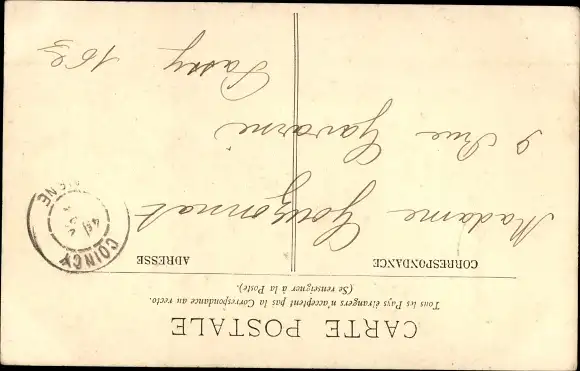 CARTE POSTALE
Tous les Pays étrangers n'acceptent pas la Correspondance au recto.
(Se renseigner à la Poste).
CORRESPONDANCE
ADRESSE
Madame Gouzonnat
9 Rue Gavarni
Passy 16e
COINCY
AISNE